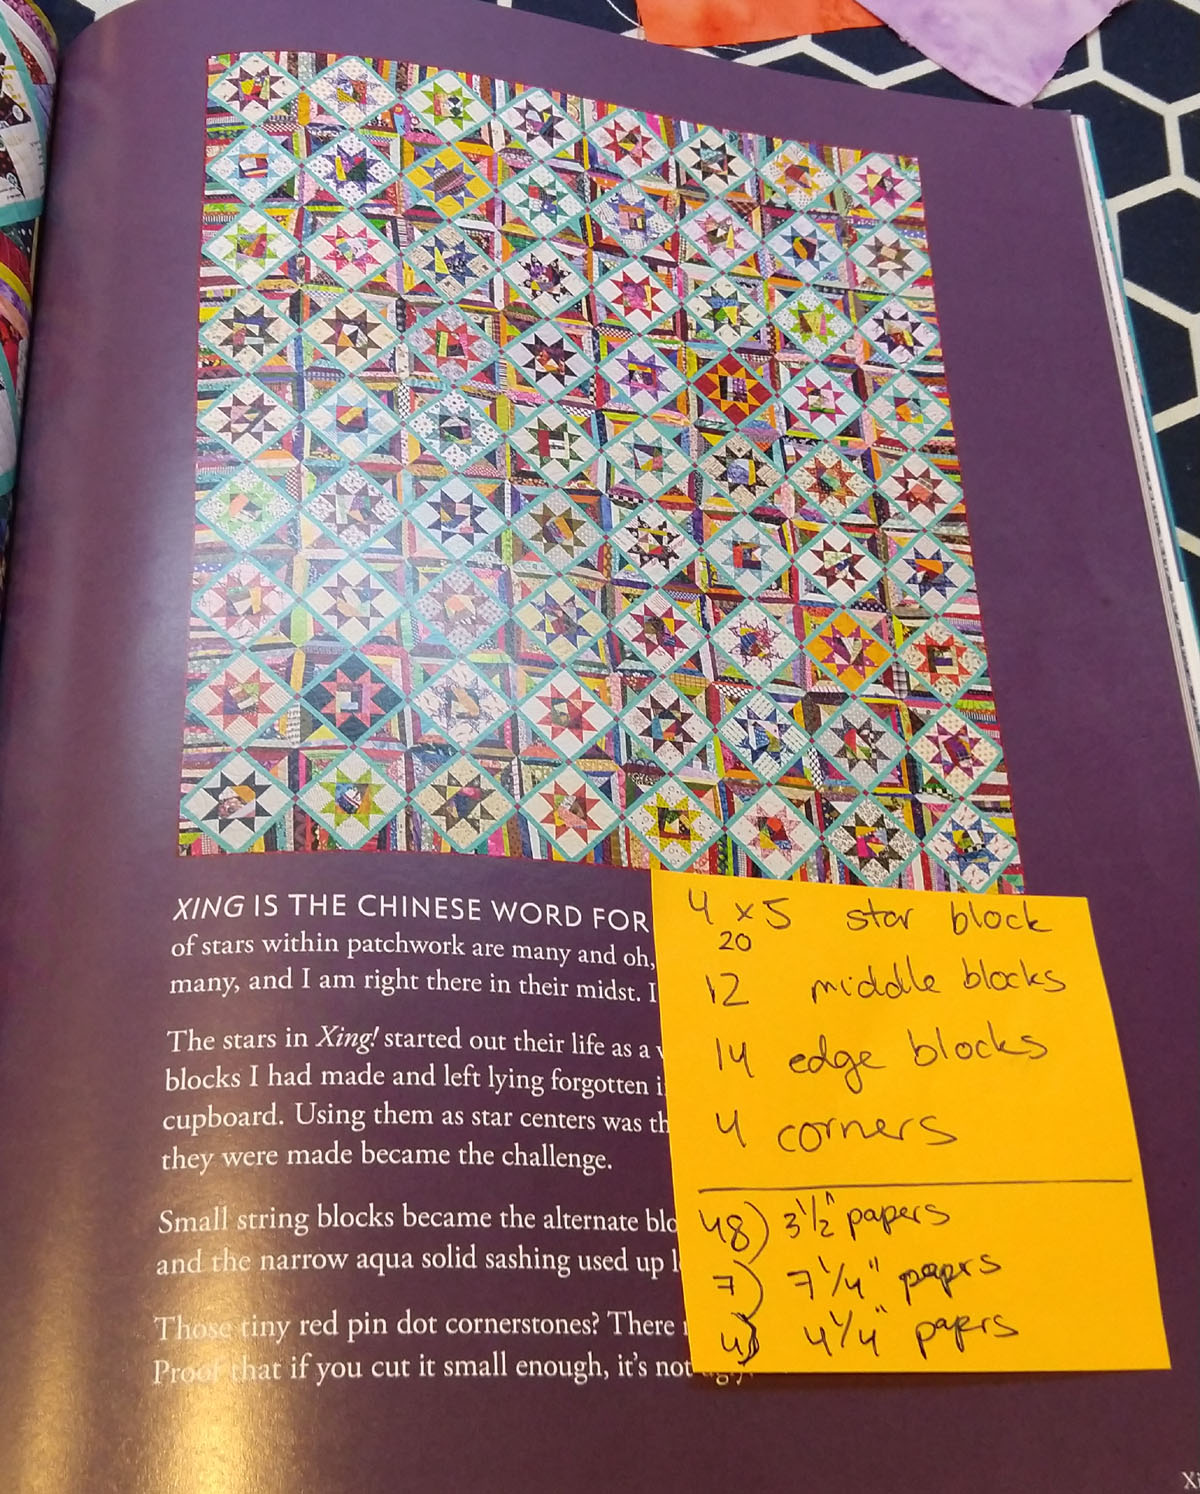 XING IS THE CHINESE WORD FOR
of stars within patchwork are many and oh,
many, and I am right there in their midst. I
The stars in Xing! started out their life as a
blocks I had made and left lying forgotten
cupboard. Using them as star centers was
they were made became the challenge.
Small string blocks became the alternate
and the narrow aqua solid sashing used up
Those tiny red pin dot cornerstones? There
Proof that if you cut it small enough, it's not
4 x 5 star block
20
12 middle blocks
14 edge blocks
4 corners
48) 3 1/2" papers
7) 7 1/4" papers
4) 4 1/4" papers